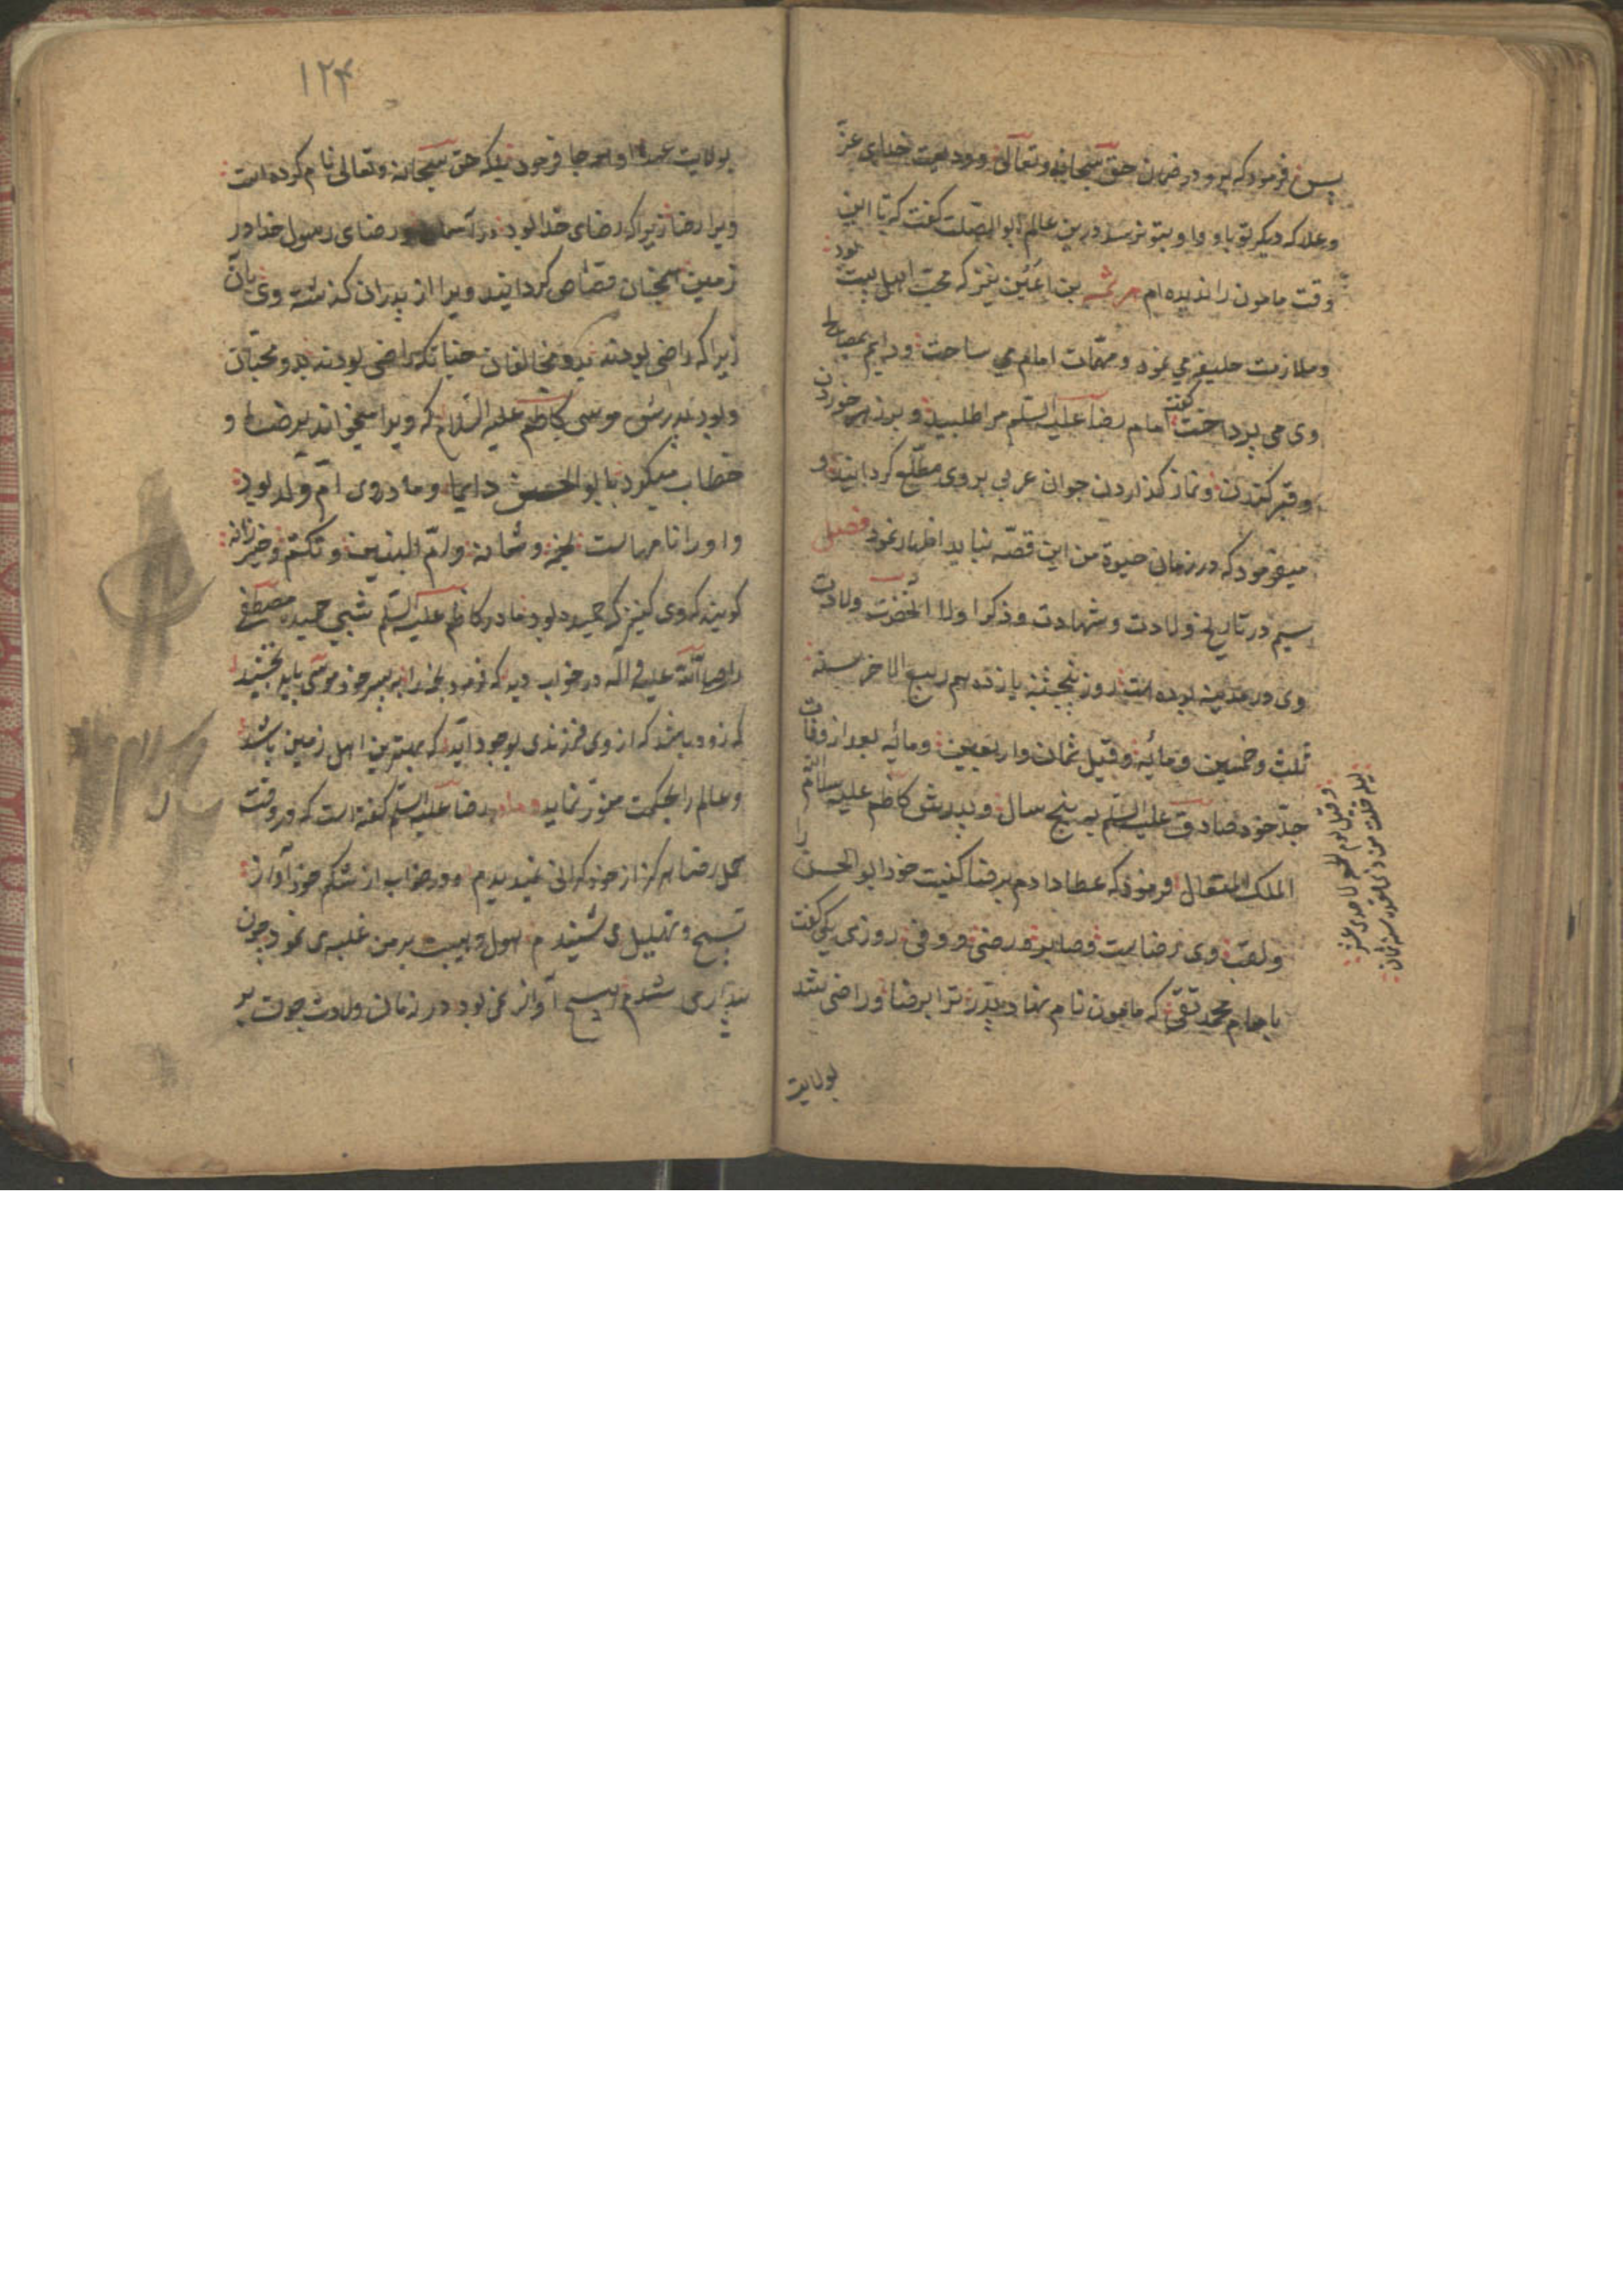 پس فرمود که برو در ضمان حق سبحانه و تعالی و ودیعت خدای عزّ
و علا که دیگر تو با و او بتو نرسد درین عالم ابو الصلت گفت که تا این
وقت مامون را ندیده ام هرثمه بن اعین نیز که محب اهل بیت بود
و ملازمت خلیفه می نمود و مهمّات امام می ساخت و دایم بمصالح
وی می پرداخت گفته امام رضا علیه السلم مرا طلبید و بر زهر خوردن
و قبر کندن و نماز گذاردن جوان عربی بر وی مطلع گردانید و
میفرمود که در زمان حیوة من این قصّه نباید اظهار نمود فصل
سیم در تاریخ ولادت و شهادت و ذکر اولاد آنحضرت ولادت
وی در مدینه بوده است روز پنجشنبه یازدهم ربیع الاخر سنه
ثلث و خمسین و مائه و قیل ثمان و اربعین و مائه بعد از وفات
جدّ خود صادق علیه السلم به پنج سال و پدرش کاظم علیه سلام
الملک المتعال فرمود که عطا دادم برضا کنیت خود ابو الحسن را
و لقب وی رضاست و صابر و رضی و وفی روزی یکی گفت
با امام محمد تقی که مامون نام نهاد پدر ترا برضا و راضی شد
بولایت
بولایت عهد او امام جا فرمود بلکه حق سبحانه و تعالی نام کرده است
ویرا رضا زیرا که رضای خدا بود در آسمان و رضای رسول خدا در
زمین همچنان قصاص گردانید ویرا از پدران گذشته وی بآن
زیرا که راضی بودند بدو مخالفان چنانکه راضی بودند بدو محبّان
و بود پدرش موسی کاظم علیه السلام که ویرا میخواند برضا و
خطاب میکرد با بو الحسن دایما و مادر وی امّ ولد بود
و او را نامهاست نجمه و سمانه و امّ البنین و تکتم و خیزرانه
گویند که وی کنیزک حمیده بود مادر کاظم علیه السلم شبی حمیده مصطفی
را صلی الله علیه و آله در خواب دید که فرمود نجمه را به پسر خود موسی باید بخشید
که زود باشد که از وی فرزندی بوجود آید که بهترین اهل زمین باشد
و عالم را بحکمت منوّر نماید و مادر رضا علیه السلم گفته است که در وقت
حمل رضا هرگز از خود گرانی ندیدم و در خواب از شکم خود آواز
تسبیح و تهلیل می شنیدم هول و هیبت بر من غلبه می نمود چون
بیدار می شدم هیچ آواز نمی بود در زمان ولادت چون بر
۱۲۴